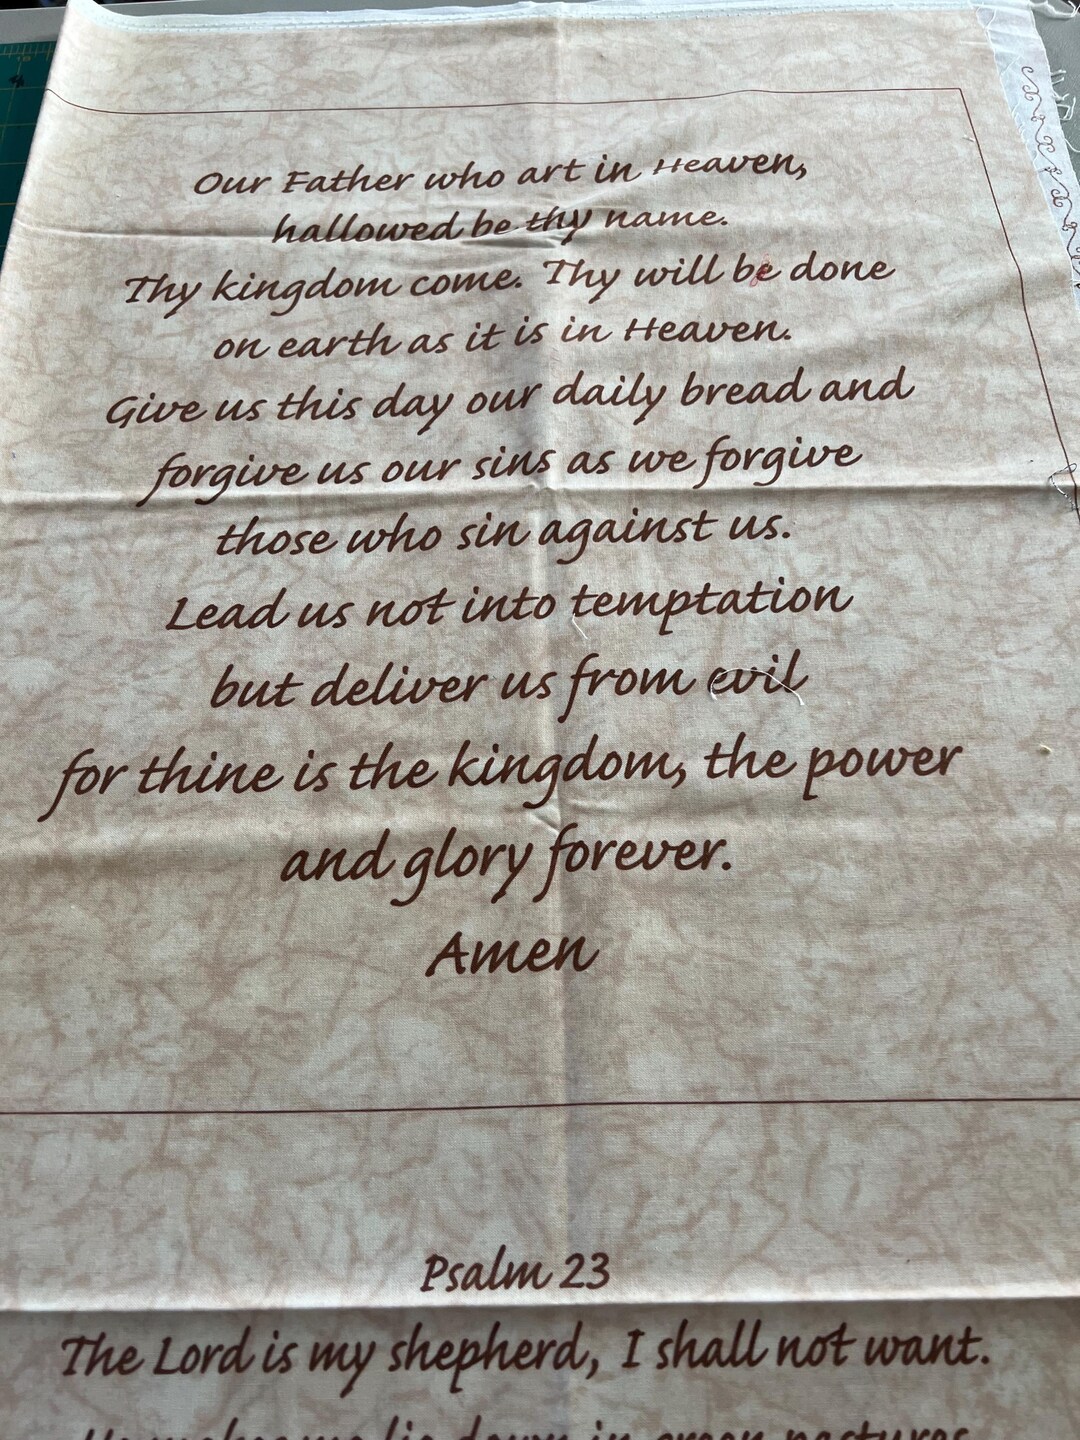 Our Father who art in Heaven,
hallowed be thy name.
Thy kingdom come. Thy will be done
on earth as it is in Heaven.
Give us this day our daily bread and
forgive us our sins as we forgive
those who sin against us.
Lead us not into temptation
but deliver us from evil
for thine is the kingdom, the power
and glory forever.
Amen
Psalm 23
The Lord is my shepherd, I shall not want.
He makes me lie down in green pastures